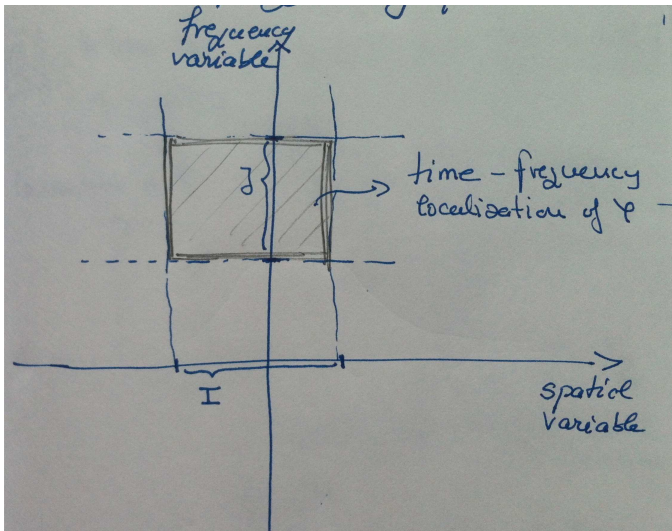 frequency
variable
J
time - frequency
localization of φ -
I
spatial
variable